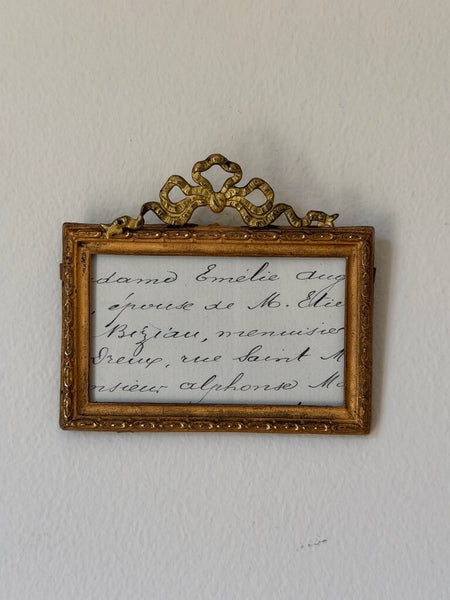 adame Emélie aug
, épouse de M. Etie
Béziau, menuisie
Dreux, rue Saint M
nsieur alphonse, Ma